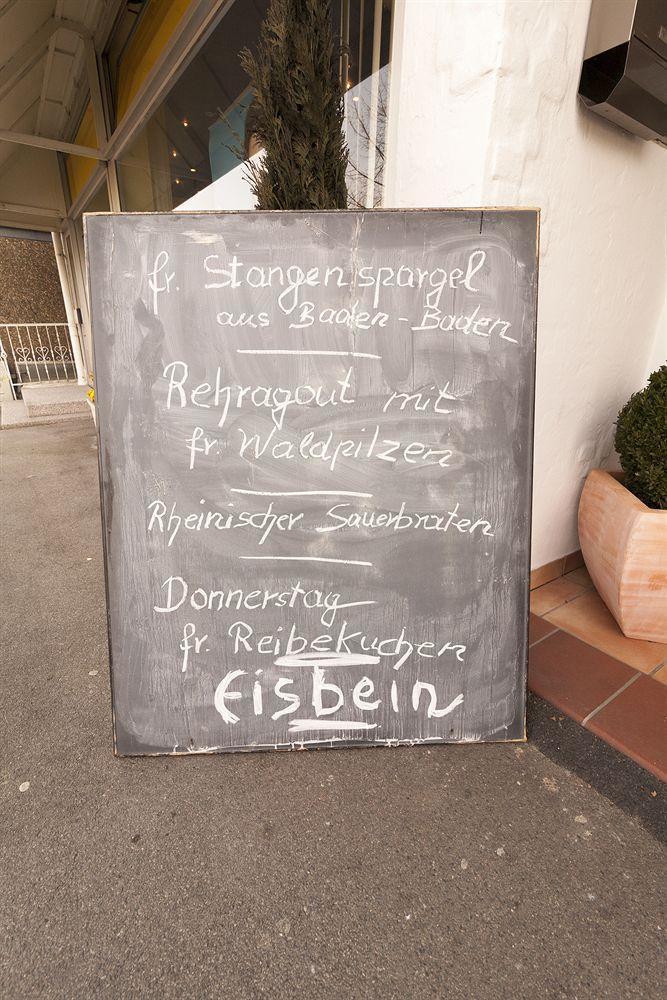 fr. Stangenspargel
aus Baden-Baden
Rehragout mit
fr. Waldpilzen
Rheinischer Sauerbraten
Donnerstag
fr. Reibekuchen
Eisbein